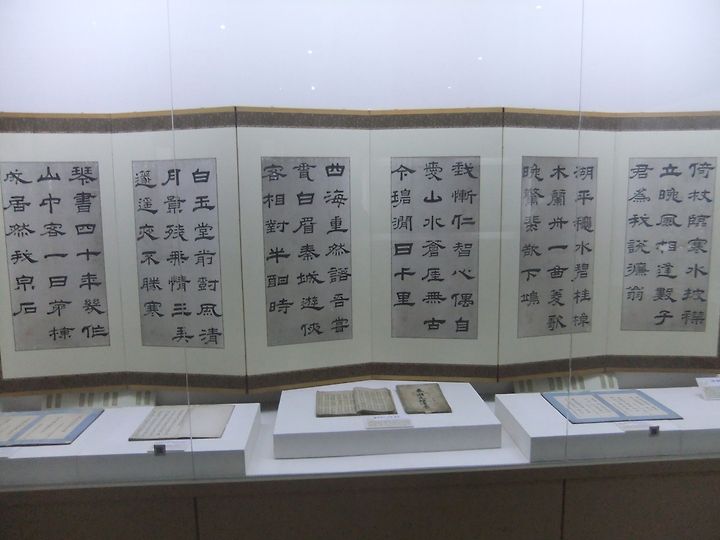 倚杖臨寒水披襟
立晚風相逢數子
君爲我說濂翁
湖平穩水碧桂棹
木蘭舟一曲菱歌
晚驚欲下鴎
我慚仁智心偶自
愛山水蒼厓無古
今碧澗日千里
四海重然諾吾嘗
白眉秦城遊俠
客相對半酣時
白玉堂前對風清
月影殘飛情三弄
夾不勝寒
琴書四十年幾作
山中客一日茅棟
成居然我泉石